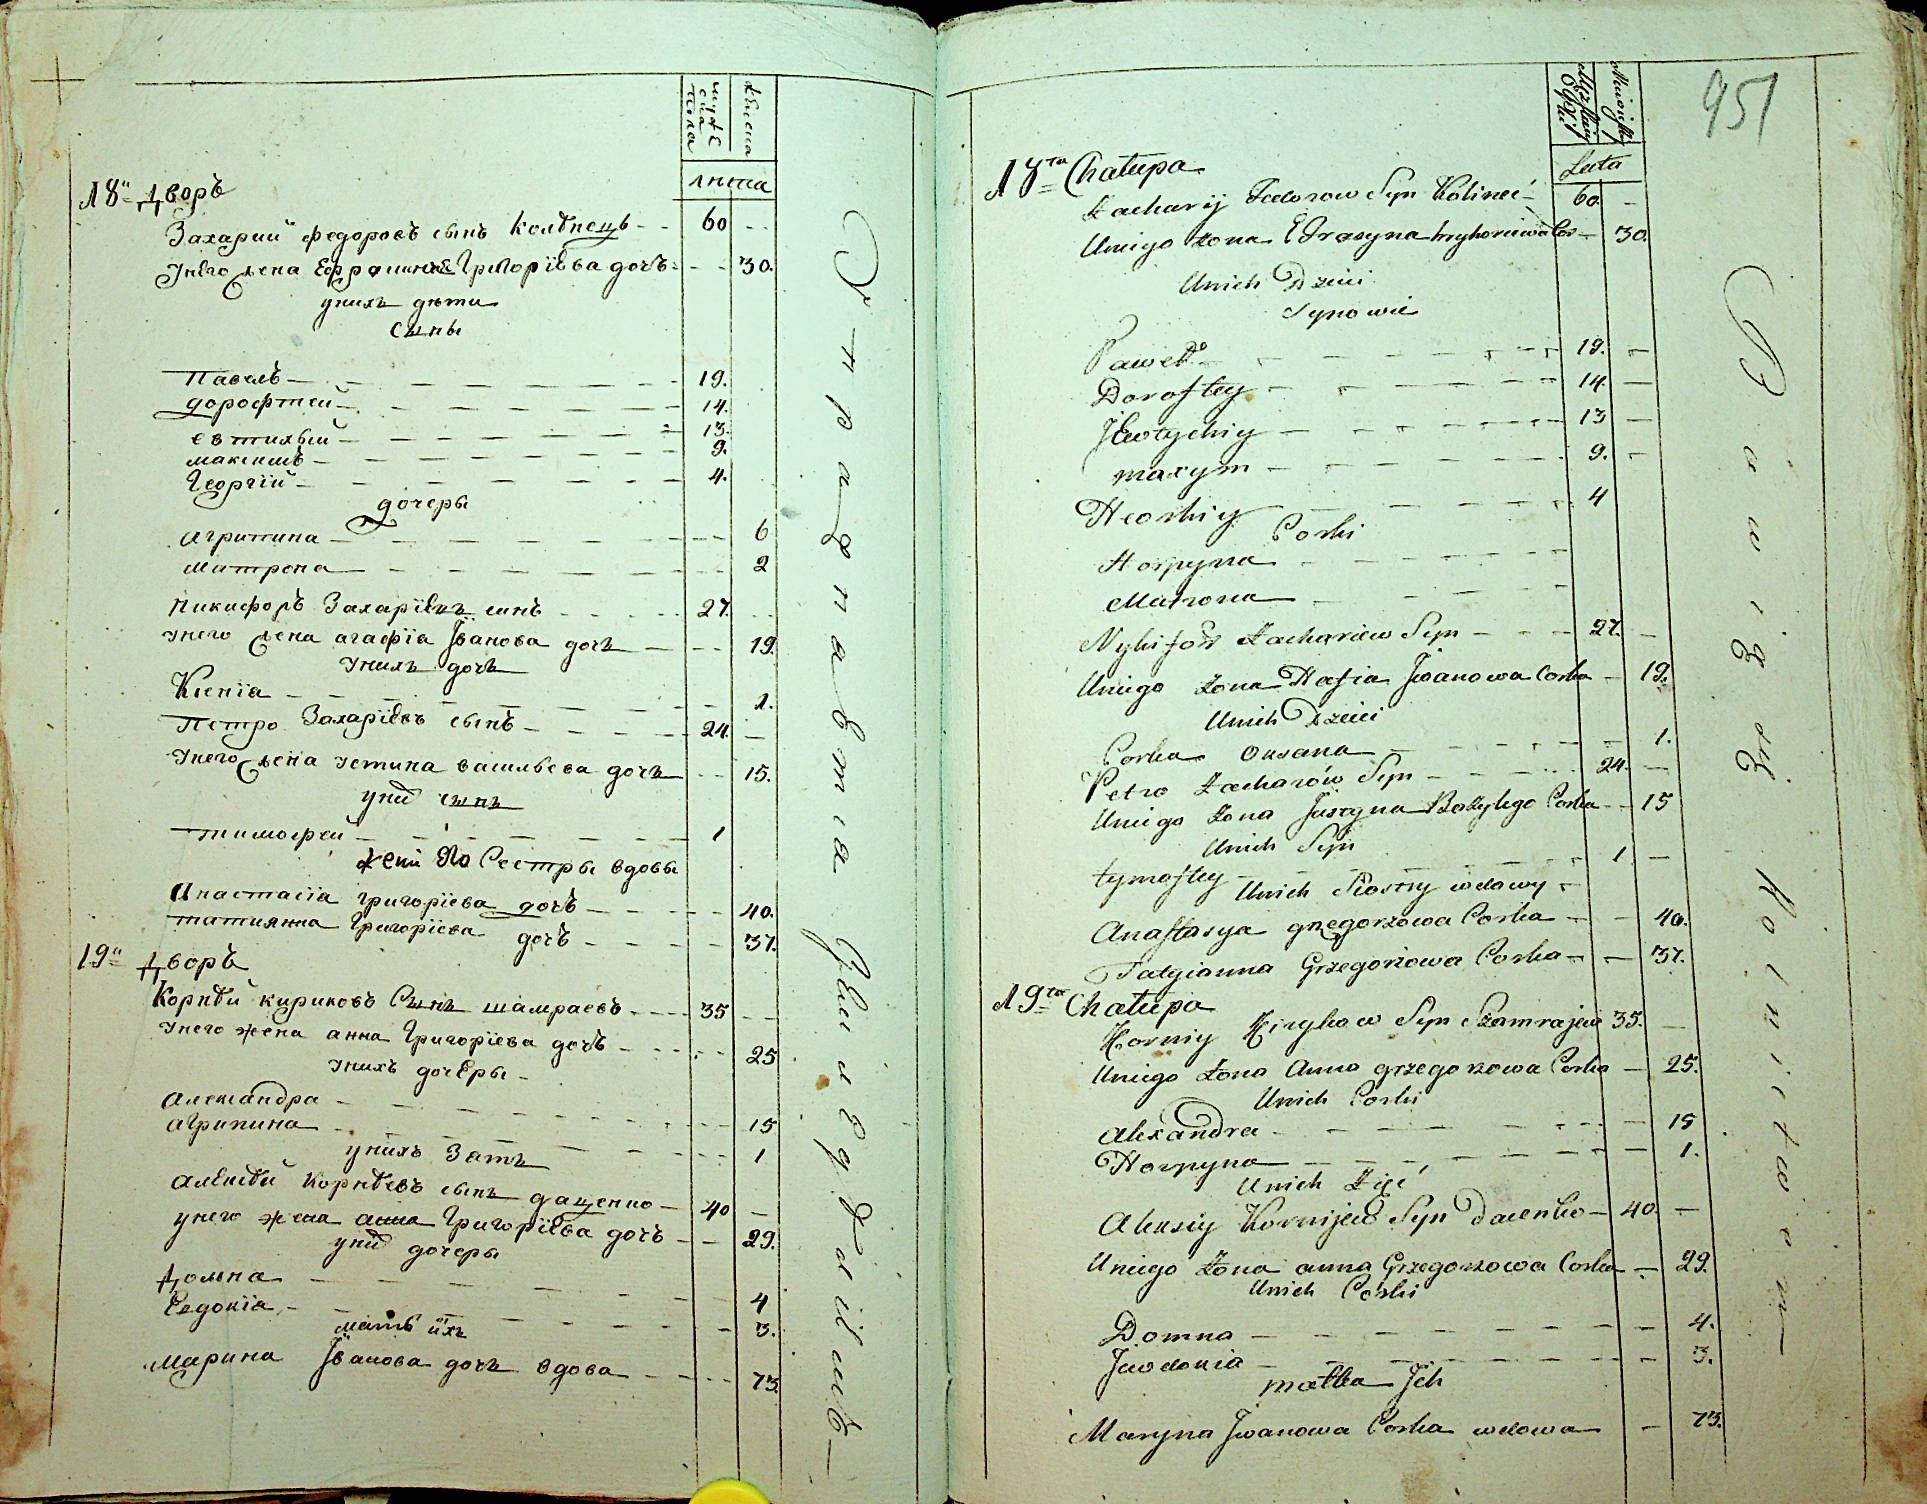 мужеска пола
женска
лѣта
18й дворъ
Захарий федоровъ сынъ Колѣнецъ 60
Унего жена Ефросинія Григоріева дочъ 30.
унихъ дѣти
сыны
Павелъ 19.
дорофтей 14.
евтихѣй 13.
максимъ 9.
Георгій 4.
дочеры
агрипина 6
матрона 2
Никифоръ Захаріевъ синъ 27.
Унего жена агафіа Іванова дочъ 19.
Унихъ дочъ
Ксенїа 1.
Петро Захаріевъ сынъ 24.
Унего жена устина васильева дочъ 15.
унихъ сынъ
тимофей 1
жени его Сестры вдовы
Анастасїа григорїева дочъ 40.
татиянна Григорїева дочъ 37.
19й дворъ
Корнѣй кириковъ Сынъ шамраевъ 35
Унего жена анна Григорїева дочъ 25
Унихъ дочеры
Александра 15
агрипина 1
унихъ Зять
Алексѣй Корнѣевъ сынъ даценко 40
унего жена анна Григорїева дочъ 29.
унихъ дочеры
Домна 4
Евдокїа 3.
мать ихъ
Марина Іванова дочъ вдова 73.
951
Lata
18ta Chałupa
Zacharij Fedorow Syn Kolineć 60.
Uniego żona Efrosyna hryhoriewa Cor 30.
Unich Dzieci
Synowie
Paweł 19.
Doroftey 14.
Jewtychiy 13
maxym 9.
Heorhiy 4
Corki
Horpyna
Matrona
Nykifor Zachariew Syn 27.
Uniego żona Hafia Jwanowa Corka 19.
Unich Dzieci
Corka Oxana 1.
Petro Zacharów Syn 24.
Uniego żona Justyna Bazylego Corka 15
Unich Syn
tymoftey 1
Unich Siostry wdowy
Anastasya grzegorzowa Corka 40.
Tatyianna Grzegorzowa Corka 37.
19ta Chałupa
Korniy Kirykow Syn Szamrajew 35.
Uniego żona Anna grzegorzowa Corka 25.
Unich Corki
Alexandra 15
Horpyna 1.
Unich Zięć
Alexiy Kornijew Syn Dacenko 40.
Uniego żona anna Grzegorzowa Corka 29.
Unich Corki
Domna 4.
Jewdokia 3.
matka Jch
Maryna Jwanowa Corka wdowa 73.